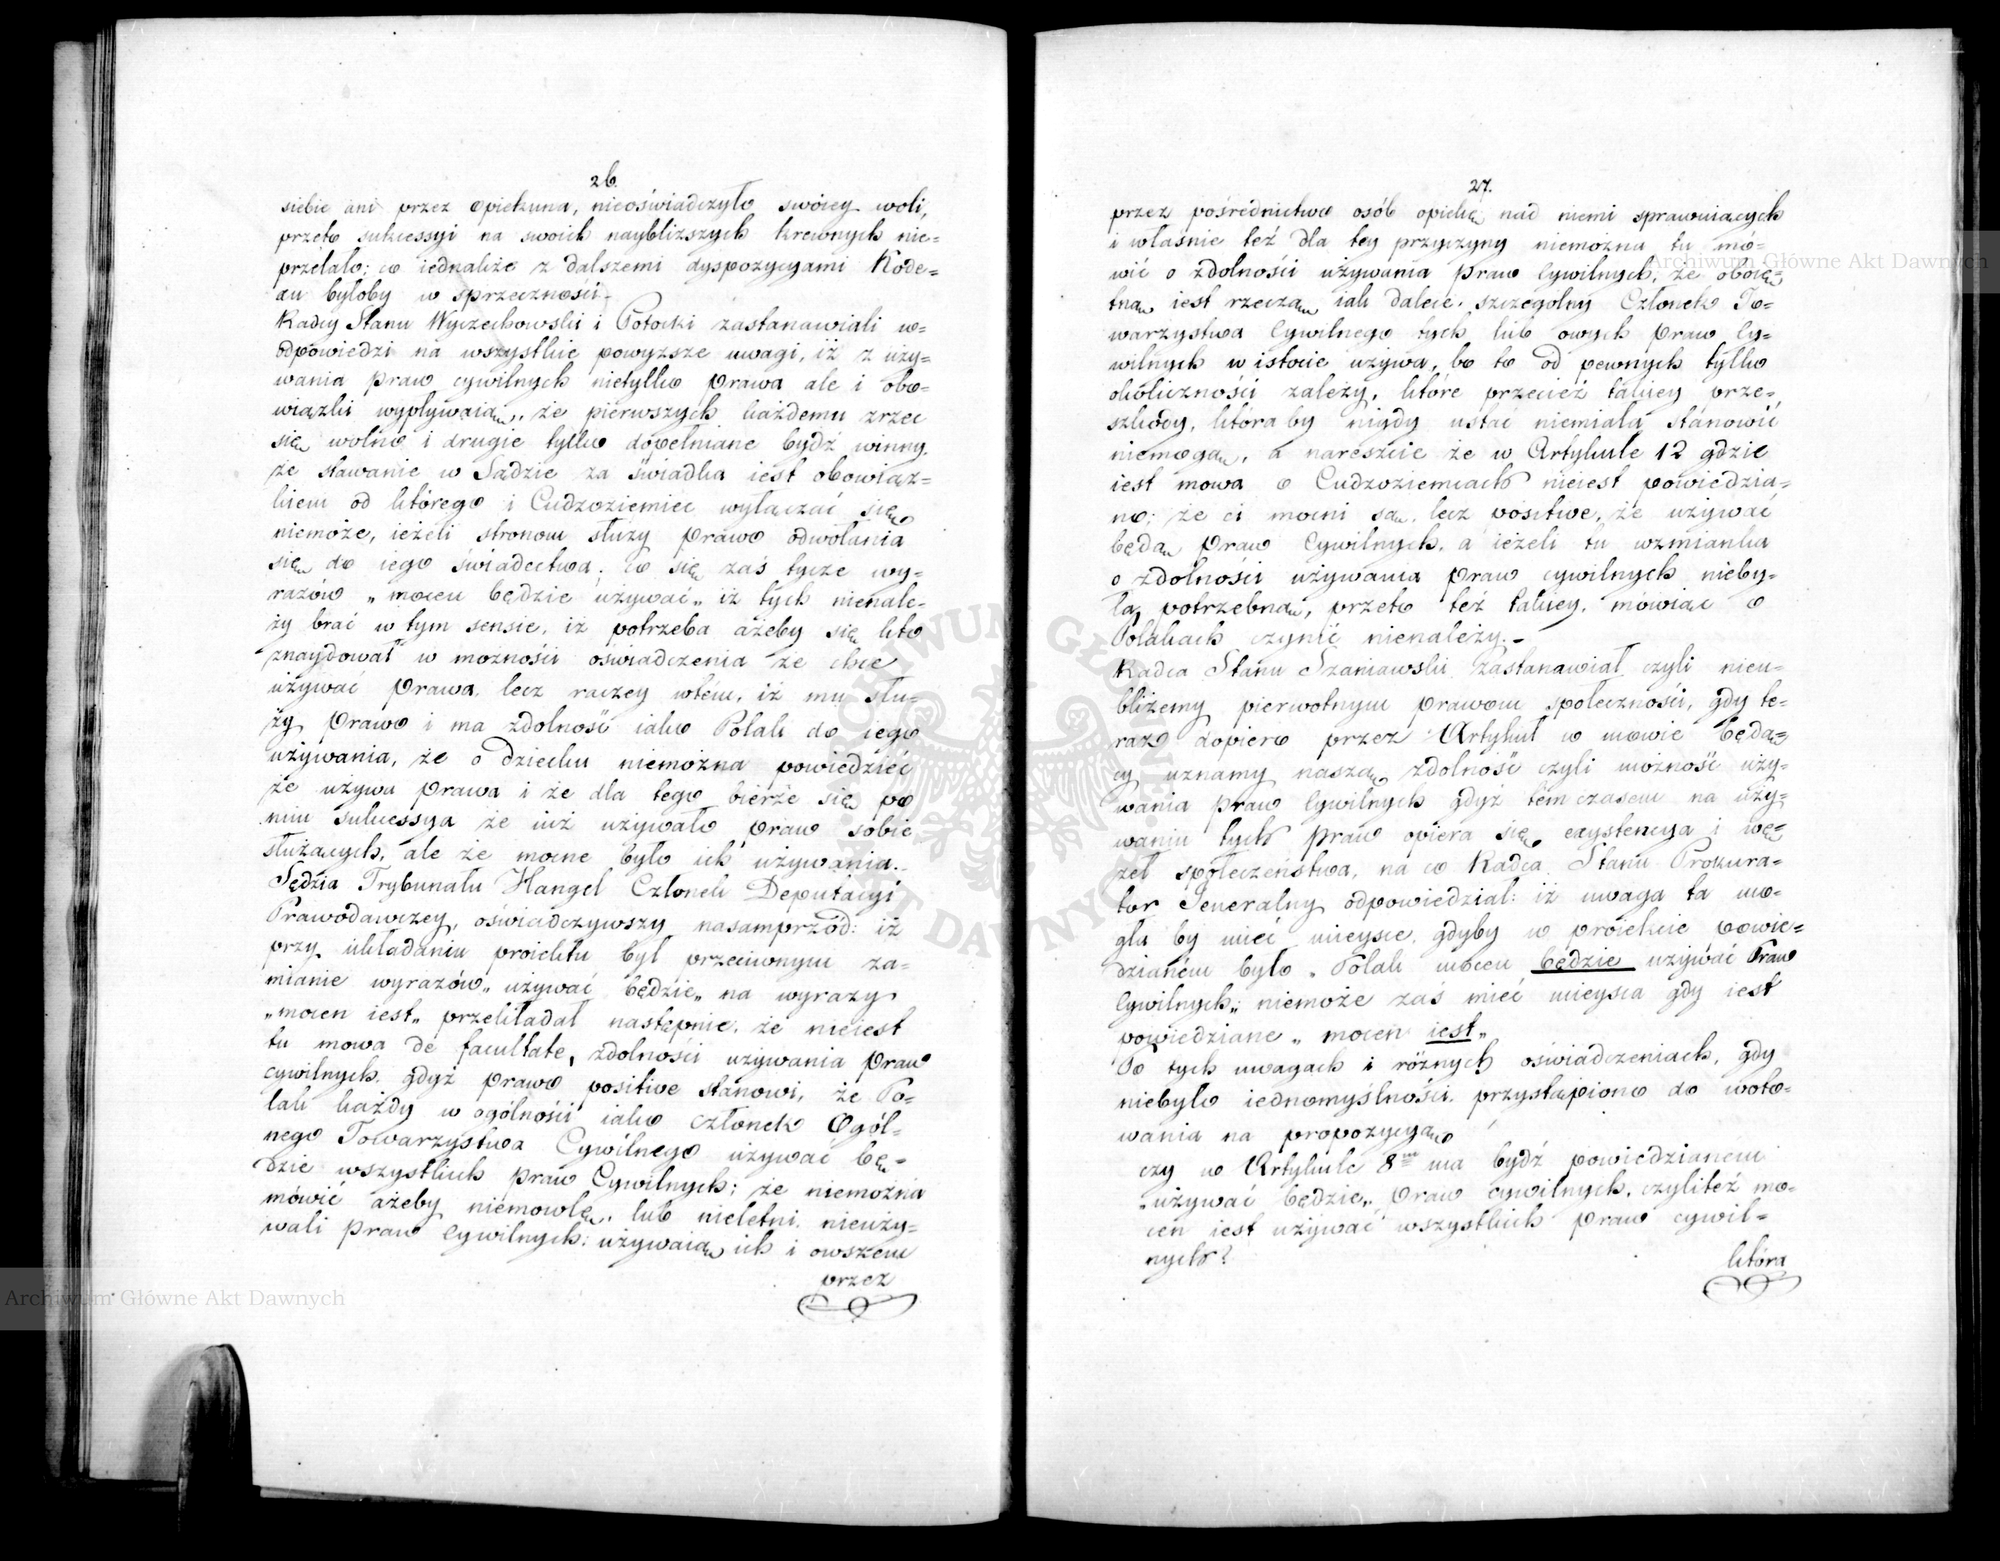 26.
siebie ani przez opiekuna, nieoświadczyło swóiey woli,
przeto sukcessyi na swoich naybliższych krewnych nie=
przelało; co iednakże z dalszemi dyspozycyami Kode=
xu byłoby w sprzeczności.
Radcy Stanu Wyczechowski i Potocki zastanawiali w=
odpowiedzi na wszystkie powyższe uwagi, iż z uży=
wania praw cywilnych nietylko prawa ale i obo=
wiązki wypływaią, że pierwszych każdemu zrzec
się wolno i drugie tylko dopełniane bydź winny,
że stawanie w Sądzie za świadka iest obowiąz=
kiem od którego i Cudzoziemiec wyłączać się
niemoże, ieżeli stronom służy prawo odwołania
się do iego świadectwa. Co się zaś tycze wy=
razów „mocen będzie używać„ iż tych nienale=
ży brać w tym sensie, iż potrzeba ażeby się kto
znaydował w możności oświadczenia że chce
używać prawa, lecz raczey wtém, iż mu słu=
ży prawo i ma zdolność iako Polak do iego
używania, że o dziecku niemożna powiedzieć
że używa prawa i że dla tego bierze się po
nim sukcessya że iuż używało praw sobie
służących, ale że mocne było ich używania.
Sędzia Trybunału Hangel Członek Deputacyi
Prawodawczey, oświadczywszy nasamprzód: iż
przy układaniu proiektu był przeciwnym za=
mianie wyrazów „używać będzie„ na wyrazy
„mocen iest„ przekładał następnie, że nieiest
tu mowa de facultate, zdolności używania praw
cywilnych, gdyż prawo positive stanowi, że Po=
lak każdy w ogólności iako członek Ogól=
nego Towarzystwa Cywilnego używać bę=
dzie wszystkich praw Cywilnych; że niemożna
mówić ażeby niemowlę, lub nieletni, nieuży=
wali praw Cywilnych; używaią ich i owszem
przez
27.
przez pośrednictwo osób opiekę nad niemi sprawuiących
i właśnie też dla tey przyczyny niemożna tu mó=
wić o zdolności używania praw Cywilnych, że oboię=
tną iest rzeczą iak dalece, szczególny Członek To=
warzystwa Cywilnego tych lub owych praw Cy=
wilnych w istocie używa, bo to od pewnych tylko
okoliczności zależy, które przecież takiey prze=
szkody, któraby nigdy ustać niemiała stanowić
niemogą, a nareszcie że w Artykule 12 gdzie
iest mowa o Cudzoziemcach nieiest powiedzia=
no; że ci mocni są, lecz positive, że używać
będą praw Cywilnych, a ieżeli tu wzmianka
o zdolności używania praw cywilnych nieby=
ła potrzebną, przeto też takiey, mówiąc o
Polakach czynić nienależy.
Radca Stanu Szaniawski zastanawiał czyli nieu=
bliżemy pierwotnym prawom społeczności, gdy te=
raz dopiero przez Artykuł w mowie będą=
cy uznamy naszą zdolność czyli możność uży=
wania praw Cywilnych gdyż tem czasem na uży=
waniu tych praw opiera się exystencya i wę=
zeł społeczeństwa, na co Radca Stanu Prokura=
tor Jeneralny odpowiedział: iż uwaga ta mo=
gła by mieć mieysce, gdyby w proiekcie powie=
dzianém było „Polak mocen będzie używać Praw
Cywilnych„ niemoże zaś mieć mieysca gdy iest
powiedziane „mocen iest„
Po tych uwagach i różnych oświadczeniach, gdy
niebyło iednomyślności, przystąpiono do woto=
wania na propozycyą
czy w Artykule 8ym ma bydź powiedzianem
„używać będzie„ praw cywilnych, czyliteż mo=
cen iest używać wszystkich praw cywil=
nych?
która
Archiwum Główne Akt Dawnych
Archiwum Główne Akt Dawnych
ARCHIWUM GŁÓWNE AKT DAWNYCH